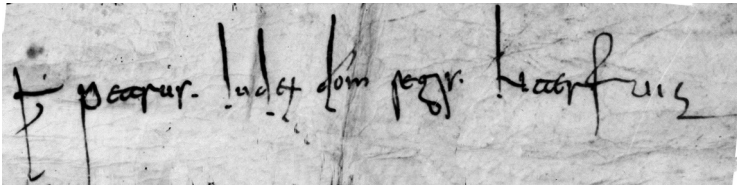 petrus. Iudex dom̄ regis. Interfui